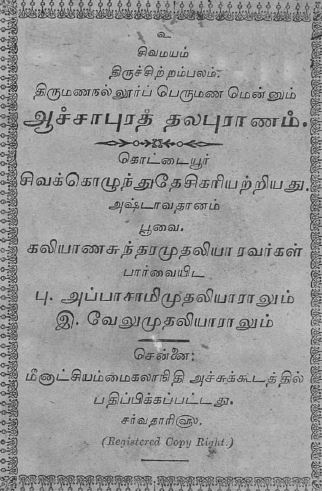 உ
சிவமயம்
திருச்சிற்றம்பலம்.
திருமணநல்லூர்ப் பெருமண மென்னும்
ஆச்சாபுரத் தலபுராணம்.
கொட்டையூர்
சிவக்கொழுந்துதேசிகரியற்றியது.
அஷ்டாவதானம்
பூவை.
கலியாணசுந்தரமுதலியாரவர்கள்
பார்வையிட
பு. அப்பாசாமிமுதலியாராலும்
இ. வேலுமுதலியாராலும்
சென்னை:
மீனாட்சியம்மைகலாநிதி அச்சுக்கூடத்தில்
பதிப்பிக்கப்பட்டது.
சர்வதாரி௵.
(Registered Copy Right.)